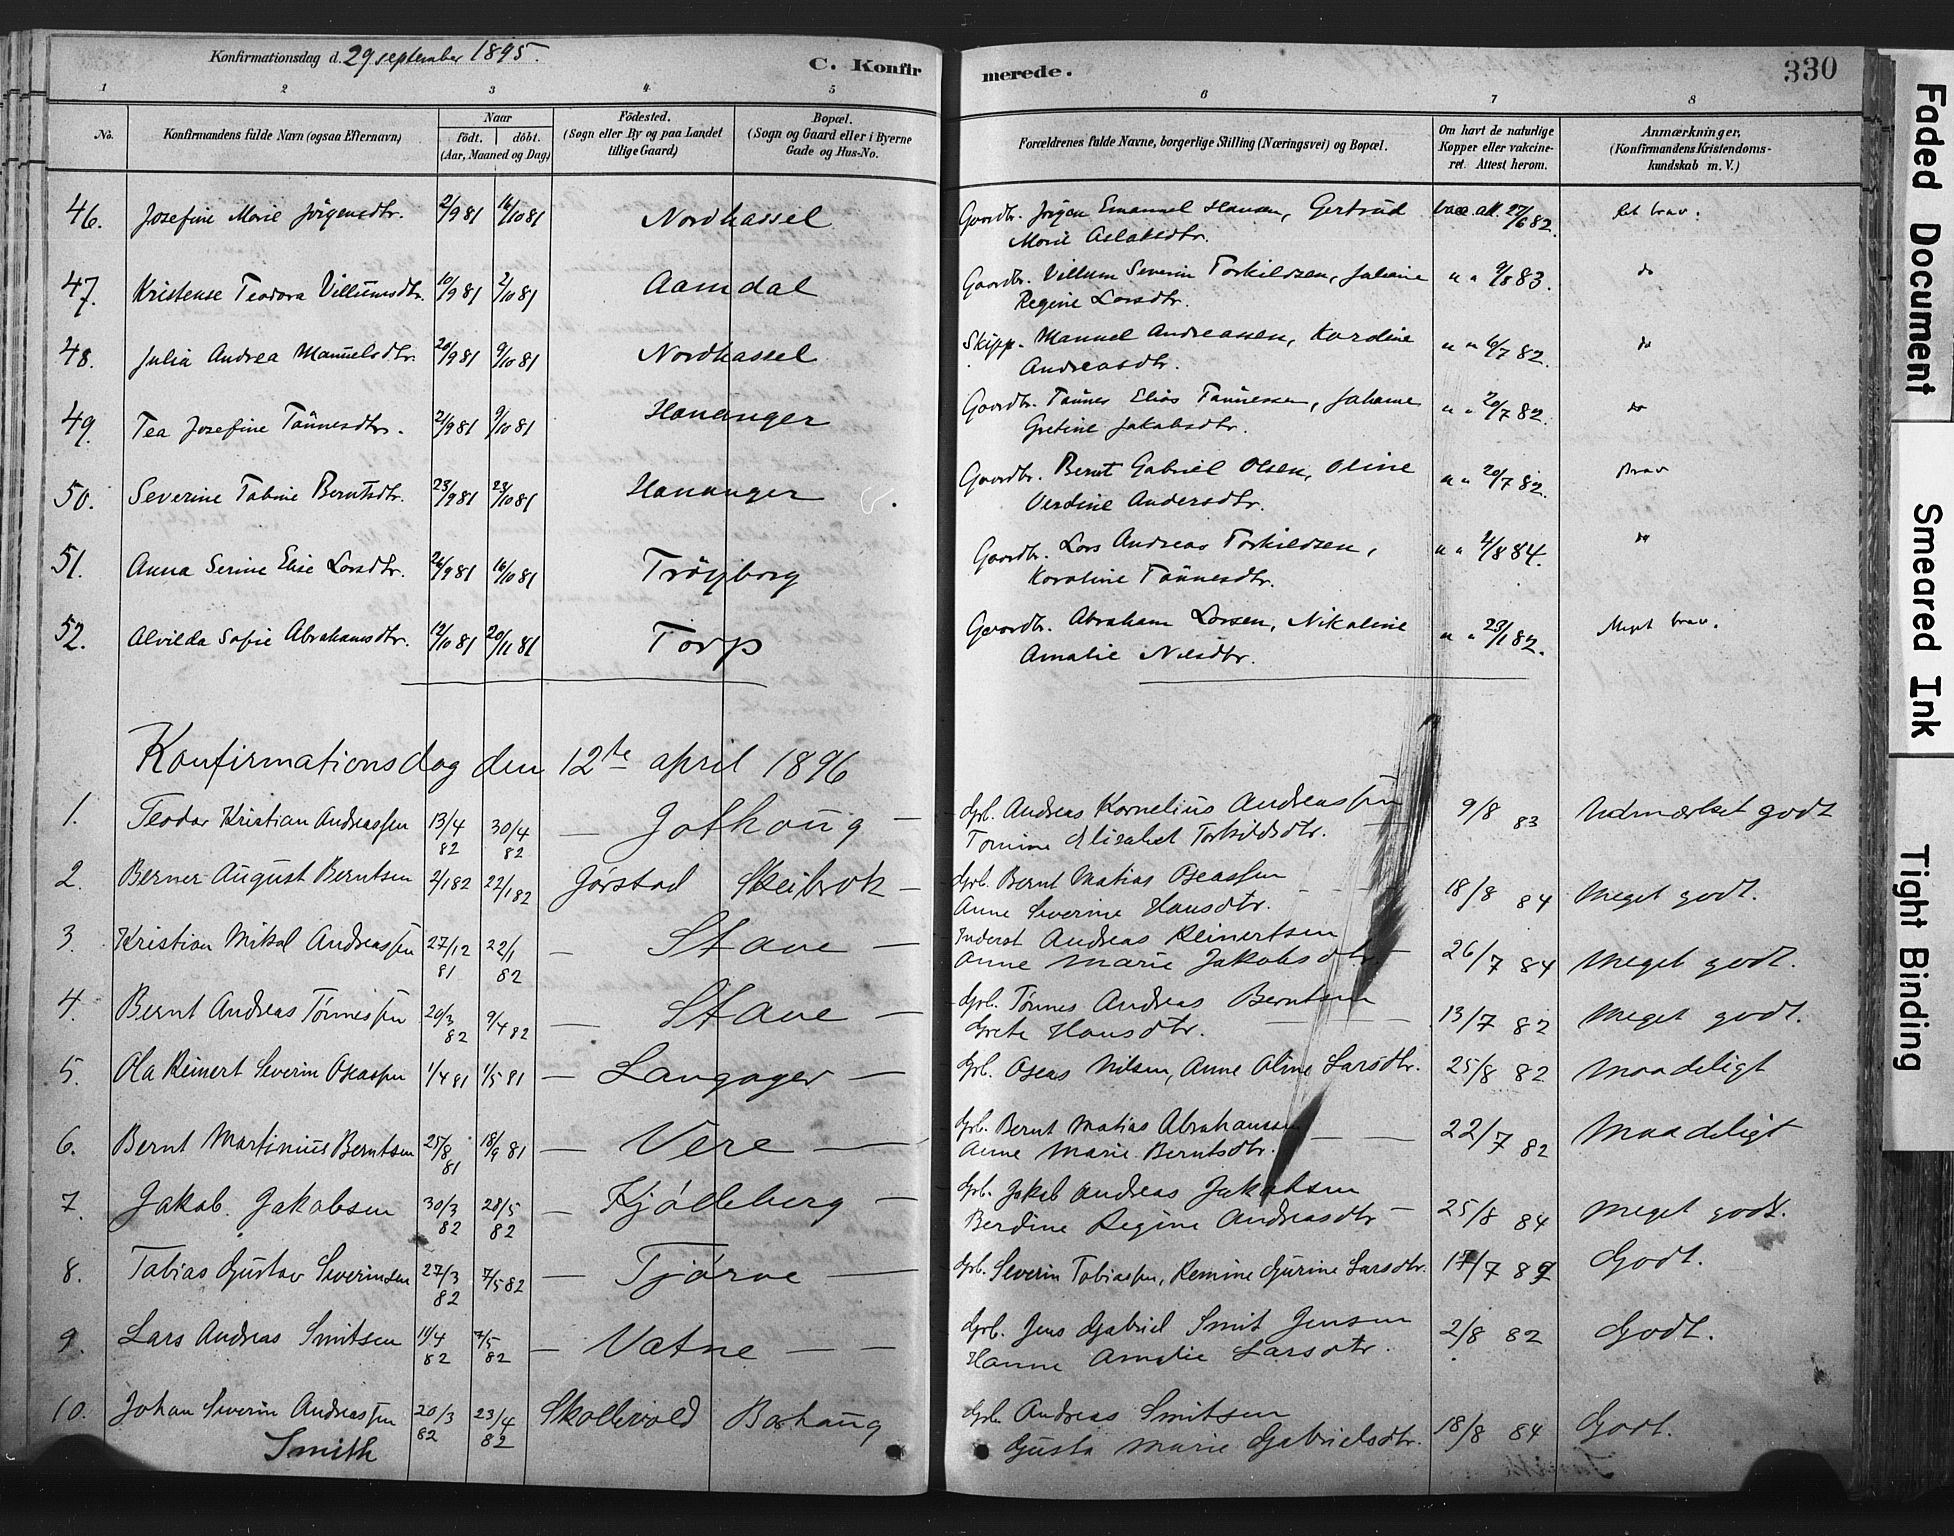 Konfirmationsdag d. 29 september 1895.
C. Konfirmerede.
330
1 2 3 4 5 6 7 8
No. Konfirmandens fulde Navn (ogsaa Efternavn)
Naar födt. döbt. (Aar, Maaned og Dag)
Födested. (Sogn eller By og paa Landet tillige Gaard)
Bopæl. (Sogn og Gaard eller i Byerne Gade og Hus-No.
Forældrenes fulde Navne, borgerlige Stilling (Næringsvei) og Bopæl.
Om havt de naturlige Kopper eller vakcineret. Attest herom.
Anmærkninger, (Konfirmandens Kristendomskundskab m. V.)
46. Josefine Marie Jörgensdtr. 2/9 81 16/10 81 Nordhassel Gaardbr. Jörgen Emanuel Hansen, Gertrud vacc. att. 27/6 82. Ret brav.
Marie Aslaksdtr.
47. Kristense Teodora Villumsdtr. 10/9 81 2/10 81 Aamdal Gaardbr. Villum Severin Torkildsen, Juliane " " 9/8 83. do
Regine Larsdtr.
48. Julia Andrea Manuelsdtr. 20/9 81 9/10 81 Nordhassel Skipp. Manuel Andreassen, Kardine " " 6/7 82. do
Andreasdtr.
49. Tea Josefine Tönnesdtr. 21/9 81 9/10 81 Hananger Gaardbr. Tönnes Elias Tönnessen, Johanne " " 20/7 82. do
Gretine Jakobsdtr.
50. Severine Tobine Berntsdtr. 23/9 81 23/10 81 Hananger Gaardbr. Bernt Gabriel Olsen, Oline " " 20/7 82. Brav
Verdine Andersdtr.
51. Anna Serine Elise Larsdtr. 26/9 81 16/10 81 Tröyborg Gaardbr. Lars Andreas Torkildsen, " " 4/8 84. do
Karoline Tönnesdtr.
52. Alvilda Sofie Abrahamsdtr. 12/10 81 20/11 81 Torp Gaardbr. Abraham Larsen, Nikoline " " 23/1 82. Meget brav.
Amalie Nilsdtr.
Konfirmationsdag den 12te april 1896
1. Teodor Kristian Andreassen 13/4 82 30/4 82 — Jothoug — Grb. Andreas Kornelius Andreassen 9/8 83 Udmærket godt
Tomine Elisabet Torkildsdtr.
2. Berner August Berntsen 2/1 82 22/1 82 Jørstad Skeibrok — Grb. Bernt Matias Oseassen 18/8 84 Meget godt.
Anne Severine Hansdtr.
3. Kristian Mikal Andreassen 27/12 81 22/1 82 — Stave — Inderst Andreas Reinertsen 26/7 84 Meget godt.
Anne Marie Jakobsdtr. —
4. Bernt Andreas Tönnessen 20/3 82 9/4 82 — Stave — Grb. Tønnes Andreas Berntsen 13/7 82 Meget godt.
Grete Hansdtr.
5. Ola Reinert Severin Oseassen 1/4 81 1/5 81 — Langager — Grb. Oseas Nilsen, Anne Oline Larsdtr. 25/8 82 Maadeligt
6. Bernt Martinius Berntsen 25/8 81 18/9 81 — Vere — Grb. Bernt Matias Abrahamssen 22/7 82 Maadeligt
Anne Marie Berntsdtr.
7. Jakob Jakobsen 30/3 82 28/5 82 — Kjölleberg — Grb. Jakob Andreas Jakobsen 25/8 84 Meget godt.
Berdine Regine Andreasdtr —
8. Tobias Gustav Severinsen 27/3 82 7/5 82 — Tjørve — Grb. Severin Tobiassen, Remine Gurine Larsdtr. 17/7 82 Godt.
9. Lars Andreas Smitsen 14/4 82 7/5 82 — Vatne — — Grb. Jens Gabriel Smit Jensen 2/8 82 Godt.
Hanne Amalie Larsdtr.
10. Johan Severin Andreassen 20/3 82 23/4 82 Skollevold Boshaug Grb. Andreas Smitsen 18/8 84 Godt.
Smith Gusta Marie Gabrielsdtr.
Faded Document
Smeared Ink
Tight Binding